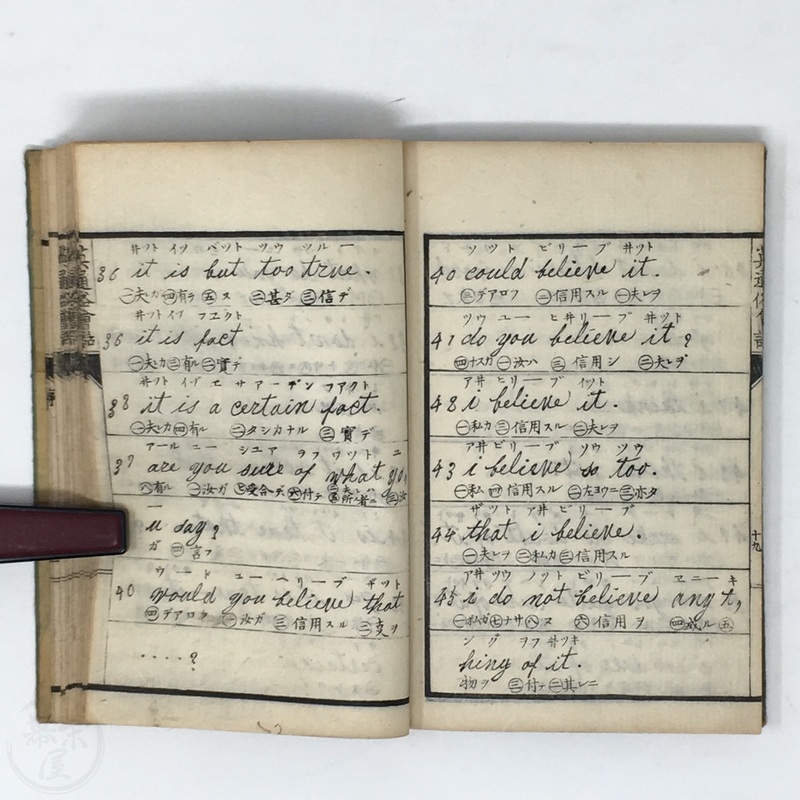 井ツト イツ バツト ツウ ツルー
36 it is but too true.
㊀夫ガ ㊃有テ ㊄ヌ ㊁甚ダ ㊂信デ
井ツト イフ フエクト
36 it is fact
㊀夫レカ ㊂有ル ㊁實デ
井ツト イヅ エ サアーデン フアクト
38 it is a certain fact.
㊀夫レカ ㊃有ル ㊁タシカナル ㊂實デ
アール ユー シユア ヲフ ワツト ユ
37 are you sure of what yo,
㊀汝ガ
u say?
ガ ㊃言フ
ウード ユー ヘリーブ ザツト
40 would you believe that
㊃デアロウ ㊀汝ガ ㊂信用スル ㊁支ヲ
....?
ツツト ビリーブ 井ツト
40 could believe it.
㊂デアロフ ㊁信用スル ㊀夫レヲ
ツウ ユー ヒ井リーブ 井ツト
41 do you believe it?
㊃ナスカ ㊀汝ハ ㊂信用シ ㊁夫レヲ
ア井 ヒリーブ イツト
48 i believe it.
㊀私カ ㊂信用スル ㊁夫レヲ
ア井 ビリーブ ソウ ツウ
43 i believe so too.
㊀私 ㊃信用スル ㊁左ヨウニ ㊂亦タ
ザツト ア井 ビリーブ
44 that i believe.
㊀夫レヲ ㊁私カ ㊂信用スル
ア井 ツウ ノット ビリーブ エニーキ
45 i do not believe anyt,
㊀私ガ ㊆ナサ ㊇ヌ ㊅信用ヲ ㊃或ル ㊄
ング ヲフ 井ツキ
hing of it.
物ヲ ㊂付テ ㊁其レニ
十九